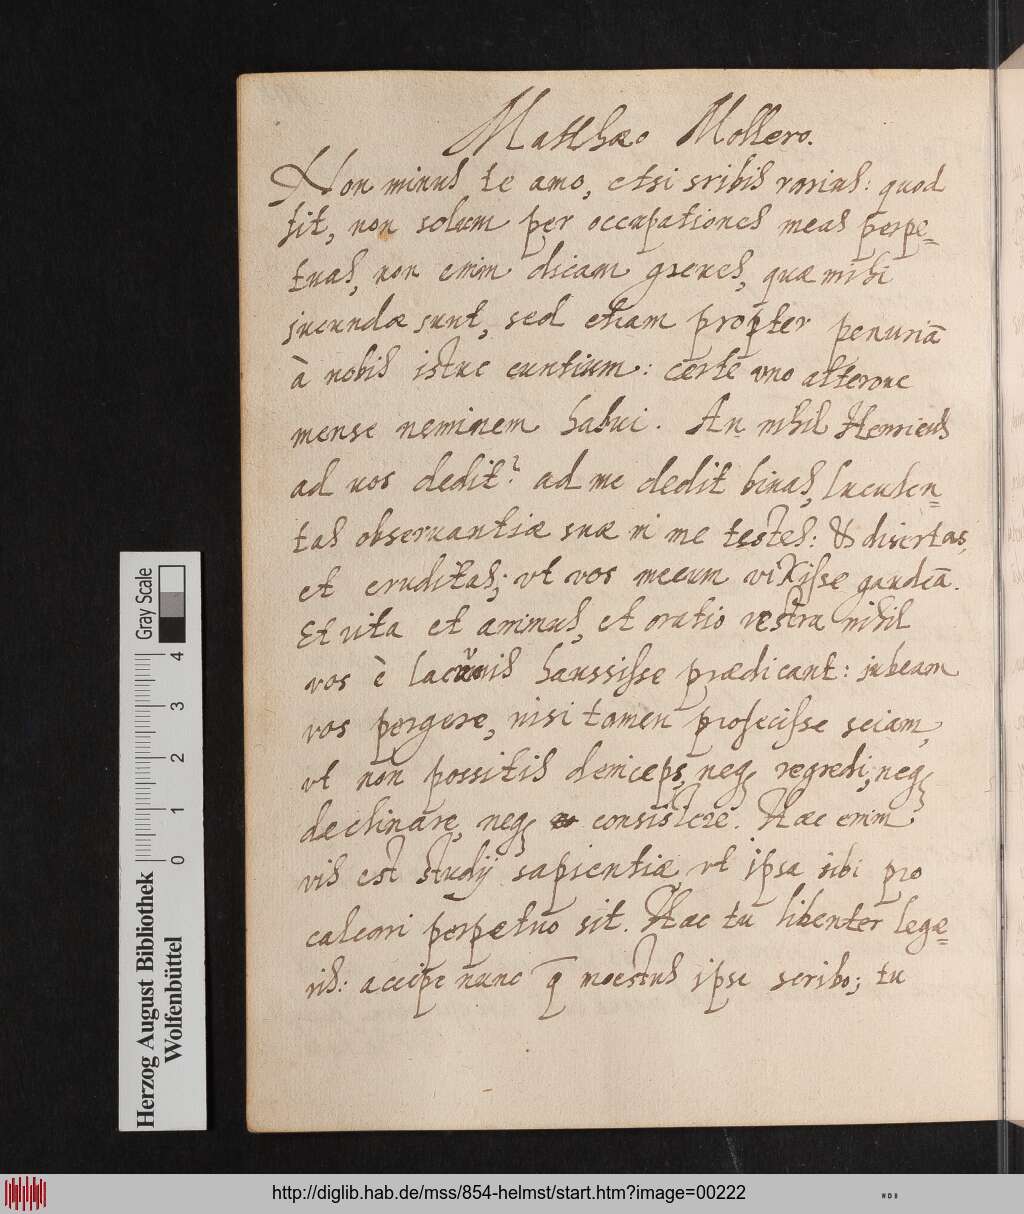 Matthæo Mollero.
Non minus te amo, etsi sribis rarius: quod
fit, non solum per occupationes meas perpe=
tuas, non enim dicam graues, quæ mihi
jucundæ sunt, sed etiam propter penuriā
à nobis istuc euntium: certè vno alteroue
mense neminem habui. An nihil Henricus
ad vos dedit? ad me dedit binas, luculen=
tas obseruantiæ suæ in me testes: & disertas,
et eruditas; vt vos mecum vixisse gaudeā.
Et vita et animus, et oratio vestra nihil
vos è lacunis haussisse prædicant: jubeam
vos pergere, nisi tamen profecisse sciam,
vt non possitis deinceps, neq3 regredi, neq3
declinare, neq3 consistere. Hæc enim
vis est studij sapientiæ vt ipsa sibi pro
calcari perpetuo sit. Hæc tu libenter legæ=
ris: accipe nunc q̄ moestus ipse scribo; tu
Gray Scale
4
3
2
1
0
Herzog August Bibliothek
Wolfenbüttel
http://diglib.hab.de/mss/854-helmst/start.htm?image=00222